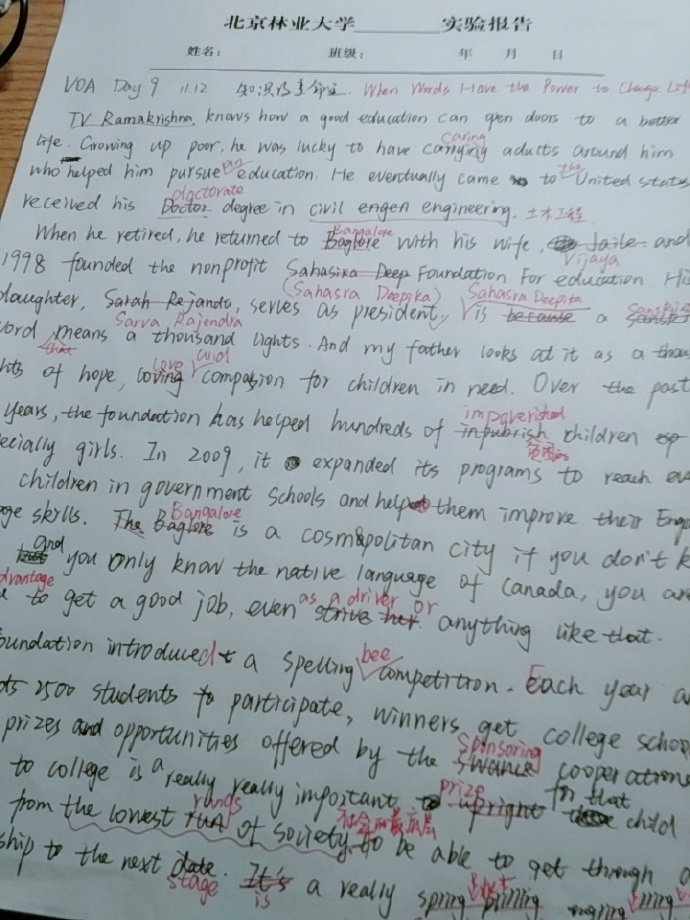 北京林业大学 实验报告
姓名: 班级: 年 月 日
VOA Day 9 11.12 知识改变命运. When Words Have the Power to Change Lif
TV Ramakrishna. knows how a good education can open doors to a better
life. Growing up poor, he was lucky to have carrying caring adults around him
who helped him pursue an education. He eventually came to the United states
received his Doctor doctorate degree in civil engen engineering. 土木工程
When he retired, he returned to Baglore Bangalore with his wife, Jaile Vijaya and
1998 founded the nonprofit Sahasira Deep (Sahasra Deepika) Foundation For education. His
daughter, Sarah Rejanda, Sarva Rajendra serves as president, Sahasra Deepika is because a Sanskri
word that means a thousand lights. And my father looks at it as a thou
hts of hope, loving love and compasion for children in need. Over the past
years, the foundation has helped hundreds of inpubrish impoverished children
ecially girls. In 2009, it expanded its programs to reach eve
children in government schools and help them improve their Eng
age skills. The Baglore Bangalore is a cosmopolitan city if you don't k
and you only know the native language of Canada, you are
dvantage to get a good job, even strive her as a driver or anything like that.
oundation introduced a spelling bee competition. Each year a
ts 2500 students to participate, winners get college schoo
prizes and opportunities offered by the sponsoring cooperations
to college is a really really important upright prize for that child
from the lowest run rungs of society 社会的最底层 to be able to get through a
ship to the next date. stage It's is a really spring